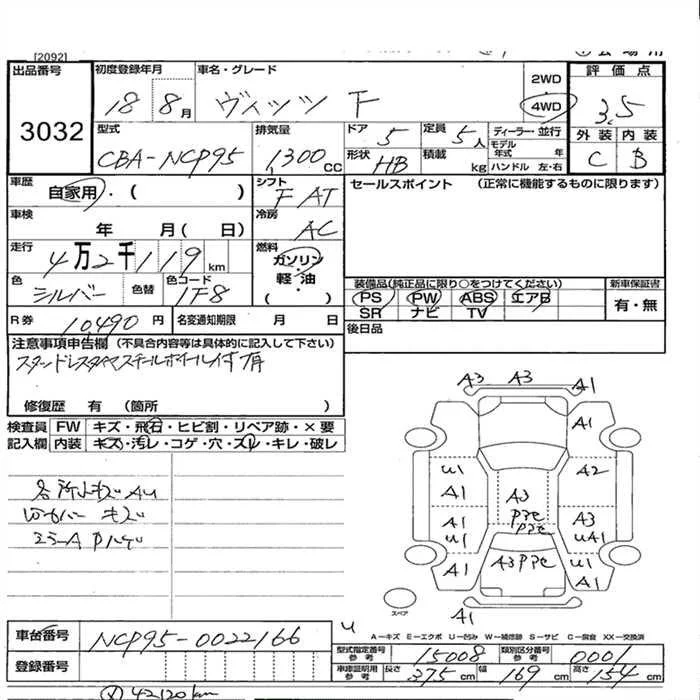 [2092]
出品番号 初度登録年月 車名・グレード 2WD 評価点
3032 18 8月 ヴィッツ F 4WD 3.5
型式 排気量 ドア 5 定員 5人 ディーラー・並行 外装 内装
CBA-NCP95 1,300cc 形状 HB 積載 kg モデル年式 年 ハンドル 左・右 C B
車歴 自家用・( ) シフト F AT セールスポイント (正常に機能するものに限ります)
車検 年 月( 日) 冷房 AC
走行 4万2千119km 燃料 ガソリン・軽油・( )
色 シルバー 色替 色コード 1F8
装備品(純正品に限り○をつけてください) 新車保証書
PS PW ABS エアB 有・無
SR ナビ TV
R券 10,490円 名変通知期限 月 日 後日品
注意事項申告欄 (不具合内容等は具体的に記入して下さい)
スタッドレスタイヤスチールホイール付有
修復歴 有 (箇所 )
検査員記入欄 FW キズ・飛石・ヒビ割・リペア跡・×要
内装 キズ・汚レ・コゲ・穴・スレ・キレ・破レ
各所小キズAU
A3 A3 A1
A1
U1 A1 A2
A3
A1 U1 A3 UA1
A1 A3 U A1
スペア A1
A-キズ E-エクボ U-凹み W-補修跡 S-サビ C-腐食 XX-交換済
車台番号 NCP95-0022166
登録番号
型式指定番号 参考 15008 類別区分番号 参考 0001
車庫証明用 参考 長さ 375cm 幅 169cm 高さ 154cm
42120km